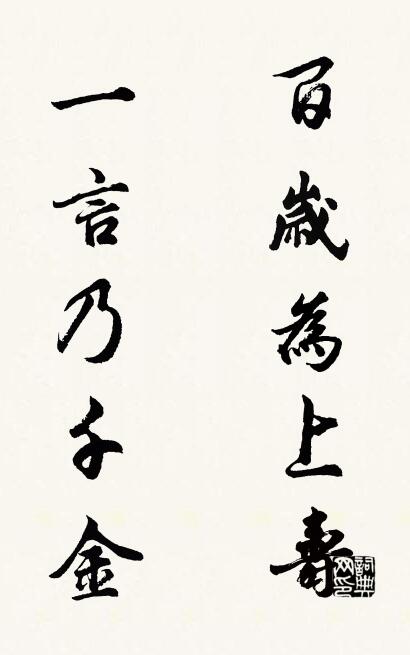 百歲為上壽
一言乃千金
詞典
网印